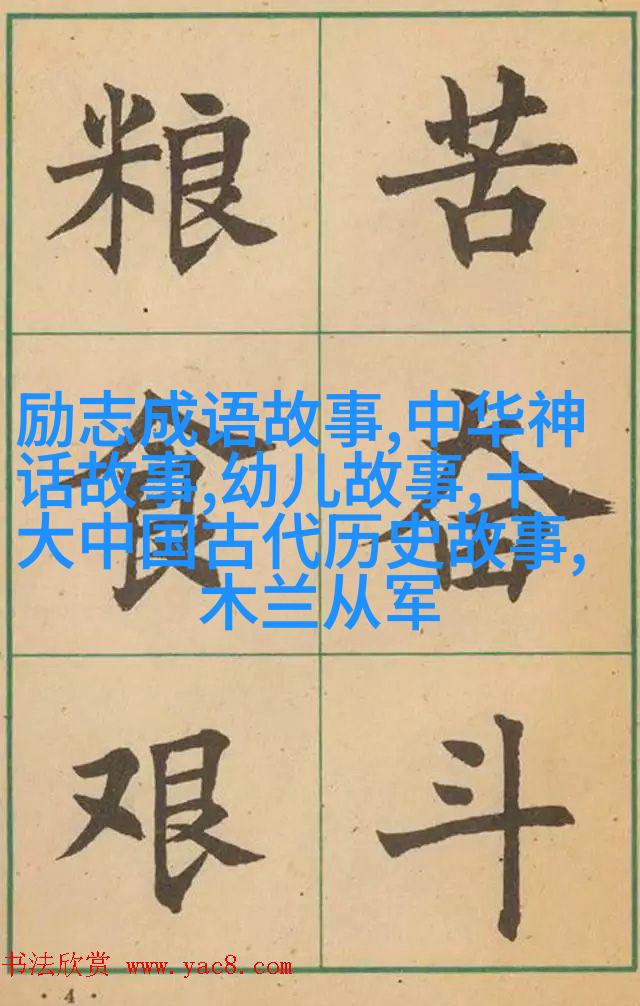 粮食艰
苦奋斗
励志成语故事,中华神
话故事,幼儿故事,十
大中国古代历史故事,
木兰从军
书法欣赏 www.yac8.com
·4·